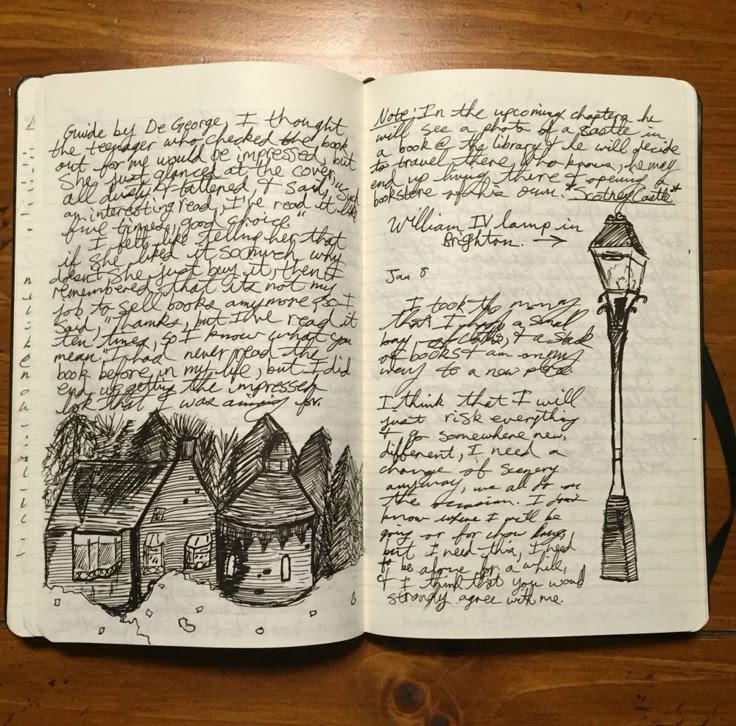 Guide by De George, I thought
the teenager who checked the book
out for me would be impressed, but
She just glanced at the cover,
all dusty & tattered, & said, "Such
an interesting read, I've read it like
five times, good choice."
I felt like telling her that
if she liked it so much why
doesn't she just buy it, then I
remembered that its not my
job to sell books anymore, so I
said "Thanks, but I've read it
ten times, so I know what you
mean" I had never read the
book before in my life, but I did
end up getting the impressed
look that I was aiming for.
Note: In the upcoming chapters he
will see a photo of a castle in
a book @ the library & he will decide
to travel there, who knows, he may
end up living there & opening a
bookstore of his own. *Scotney Castle*
William IV lamp in
Brighton. →
Jan 8
I took the money
that I had, a small
bag of clothes, & a stack
of books & am on my
way to a new place
I think that I will
just risk everything
& go somewhere new,
different, I need a
change of scenery
anyway, we all do on
the occasion. I don't
know where I will be
going or for how long,
but I need this, I need
to be alone for a while,
& I think that you would
strongly agree with me.